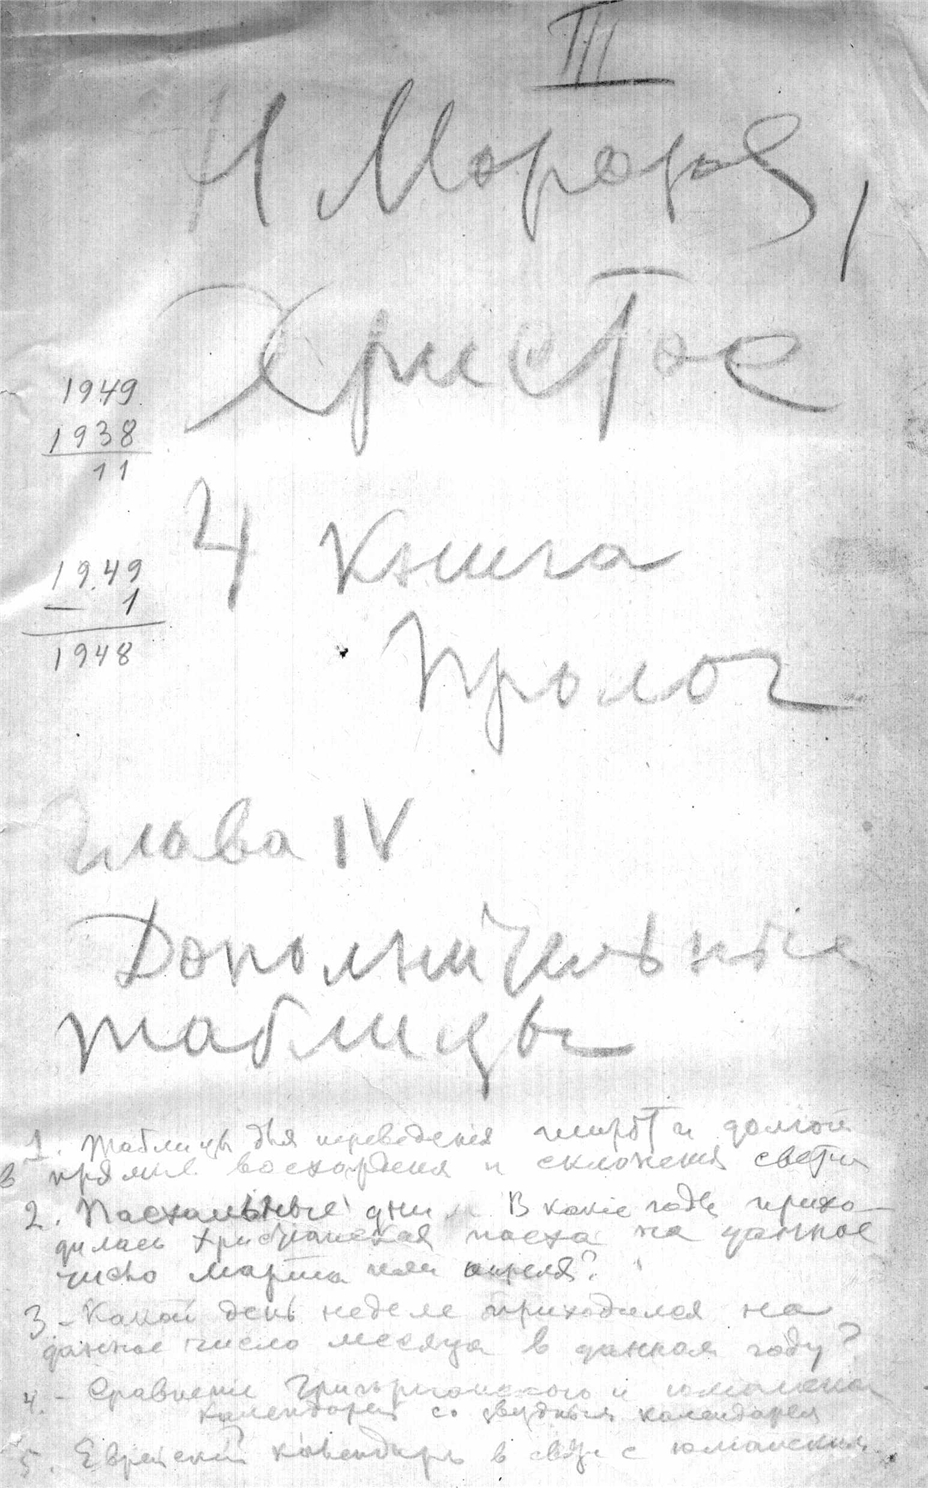 III
Н Морозов,
Христос
1949
1938
11
4 книга
19.49
— 1
1948
Пролог
Глава IV
Дополнительные
таблицы
1. Таблицы для переведения широт и долгот
в прямые восхождения и склонения светил
2. Пасхальные дни. В какие годы прихо-
дилась христианская пасха на данное
число марта или апреля?
3 - Какой день недели приходился на
данное число месяца в данном году?
4. - Сравнение Григорианского и юлианского
календарей со звездным календарем
5. Еврейский календарь в связи с юлианским